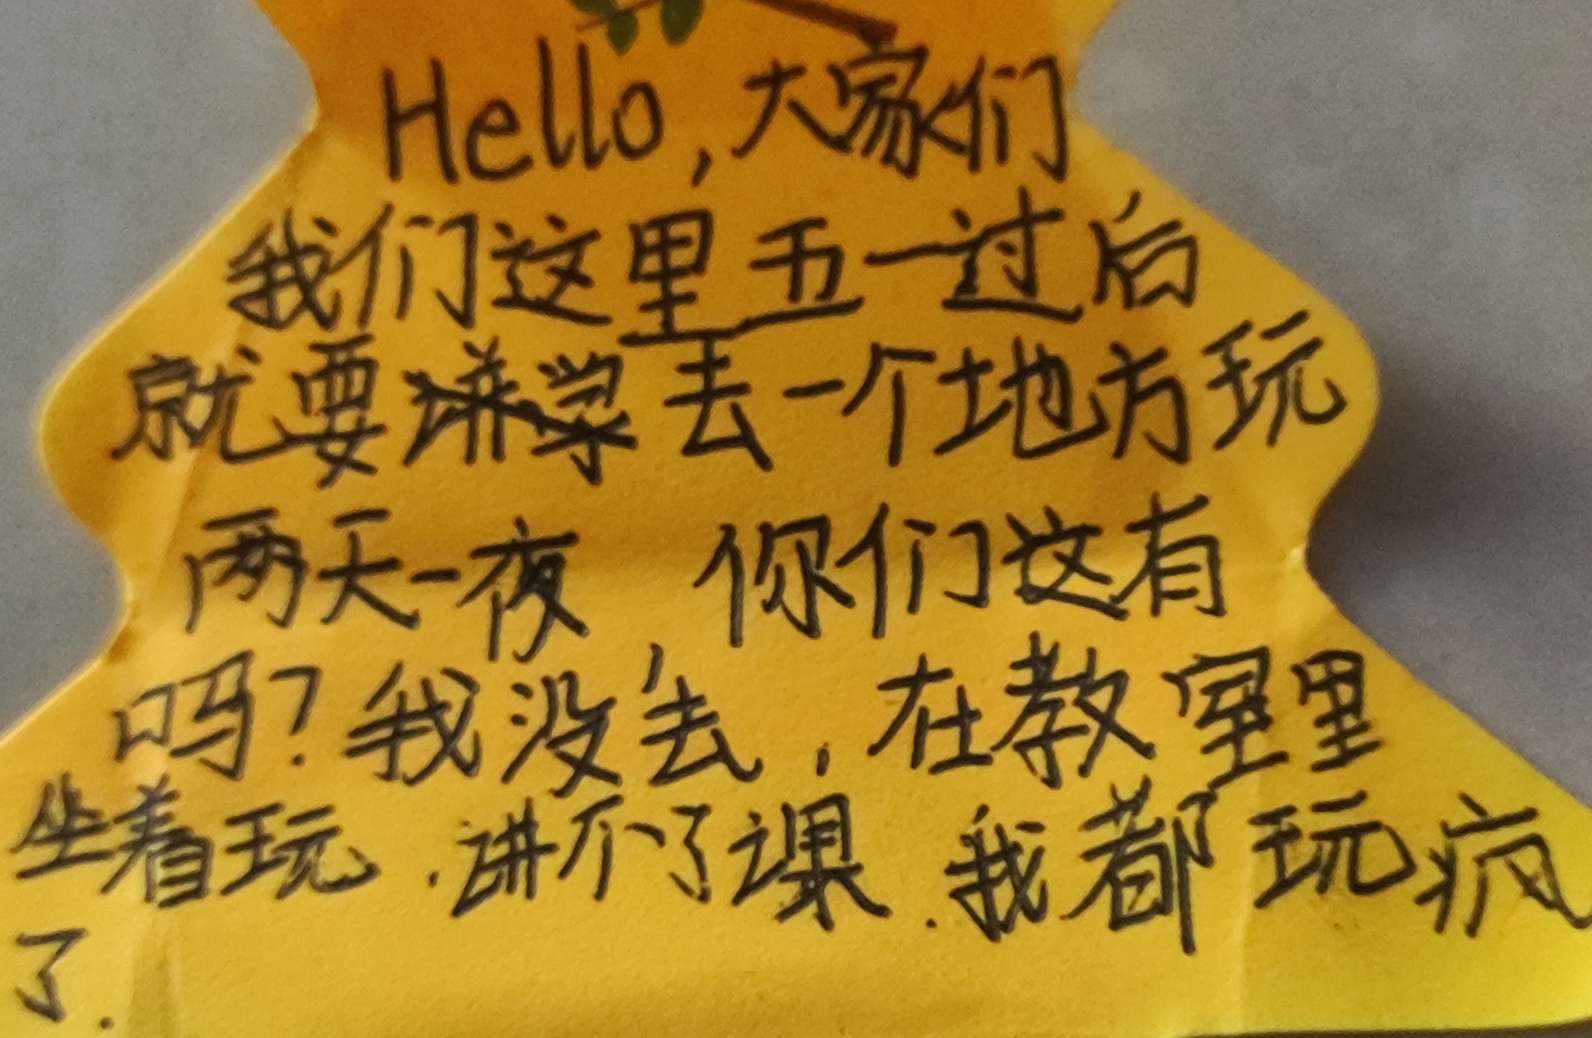 Hello,大家们
我们这里五一过后
就要去一个地方玩
两天一夜,你们这有
吗?我没去,在教室里
坐着玩.讲不了课.我都玩疯
了.